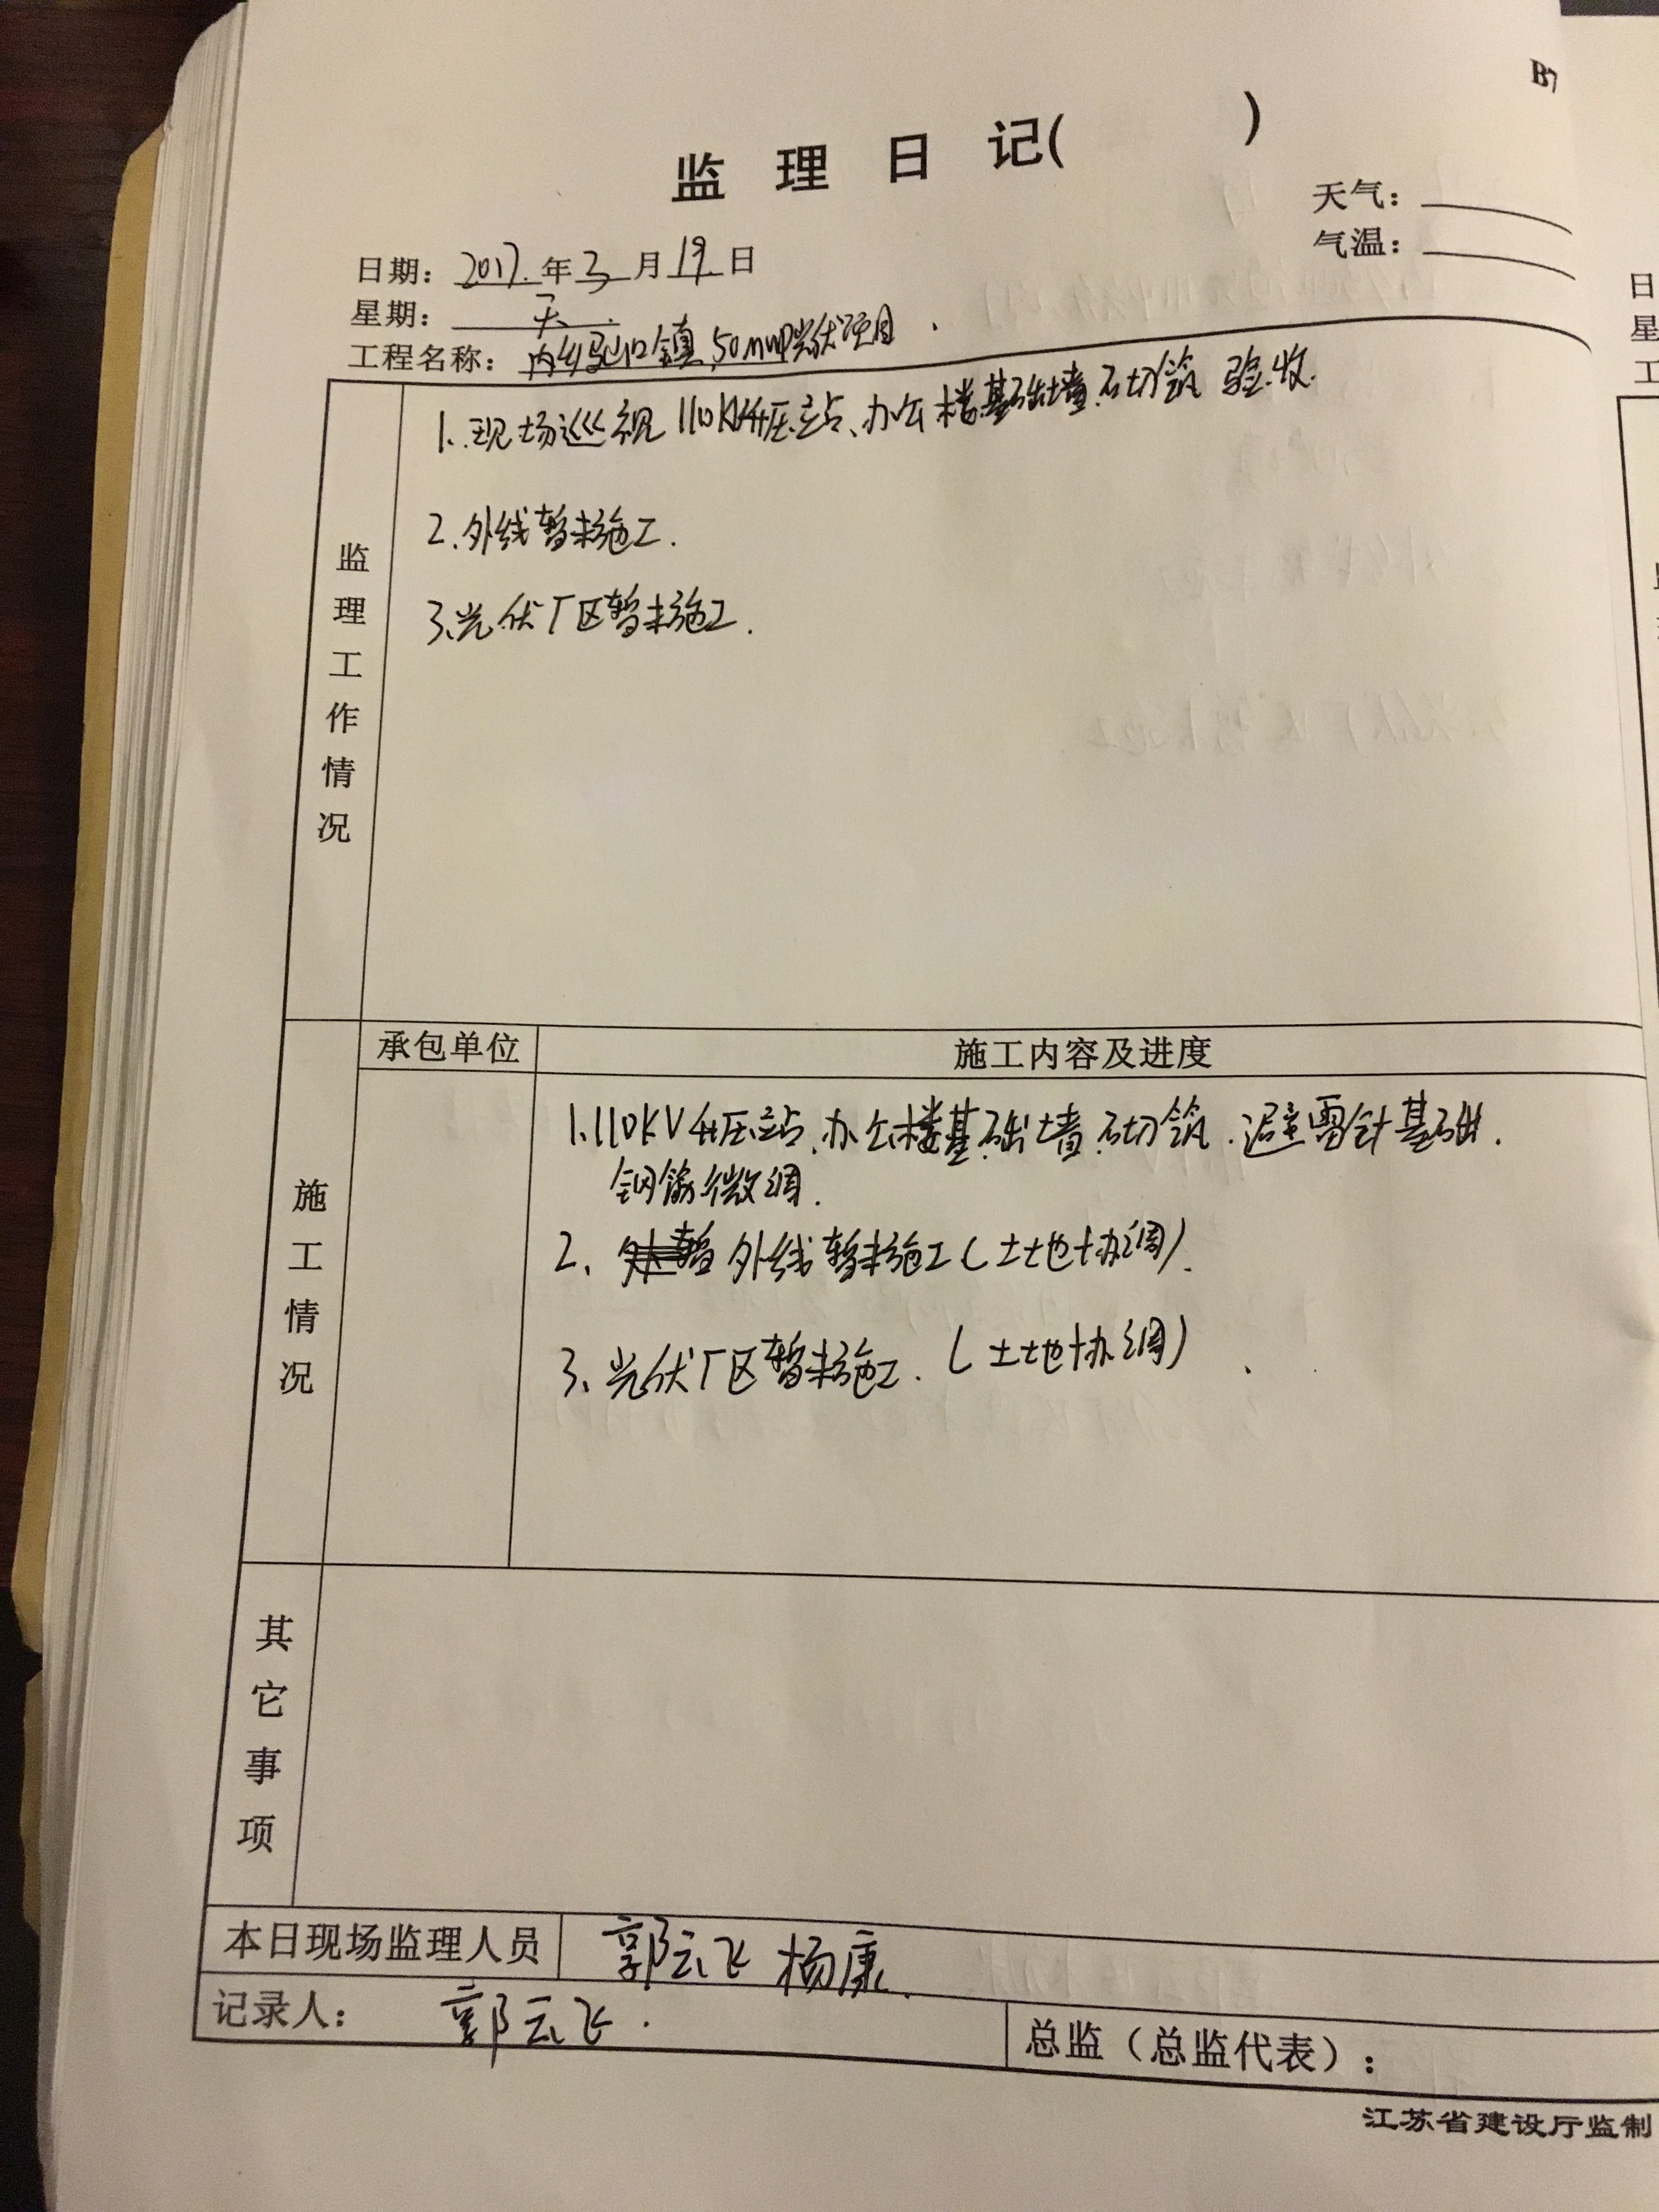 B7
监 理 日 记( )
天气：
气温：
日期：2017.年3月19日
星期：天
工程名称：内乡马山口镇50MWP光伏项目
监理工作情况
1.现场巡视110KV升压站、办公楼基础墙砌筑验收.
2.外线暂未施工.
3.光伏厂区暂未施工.
施工情况
承包单位 施工内容及进度
1.110KV升压站、办公楼基础墙砌筑.避雷针基础.
钢筋微调.
2、外线暂未施工(土地协调).
3、光伏厂区暂未施工.(土地协调)
其它事项
本日现场监理人员 郭云飞 杨康
记录人： 郭云飞.
总监（总监代表）：
江苏省建设厅监制
日
星
工